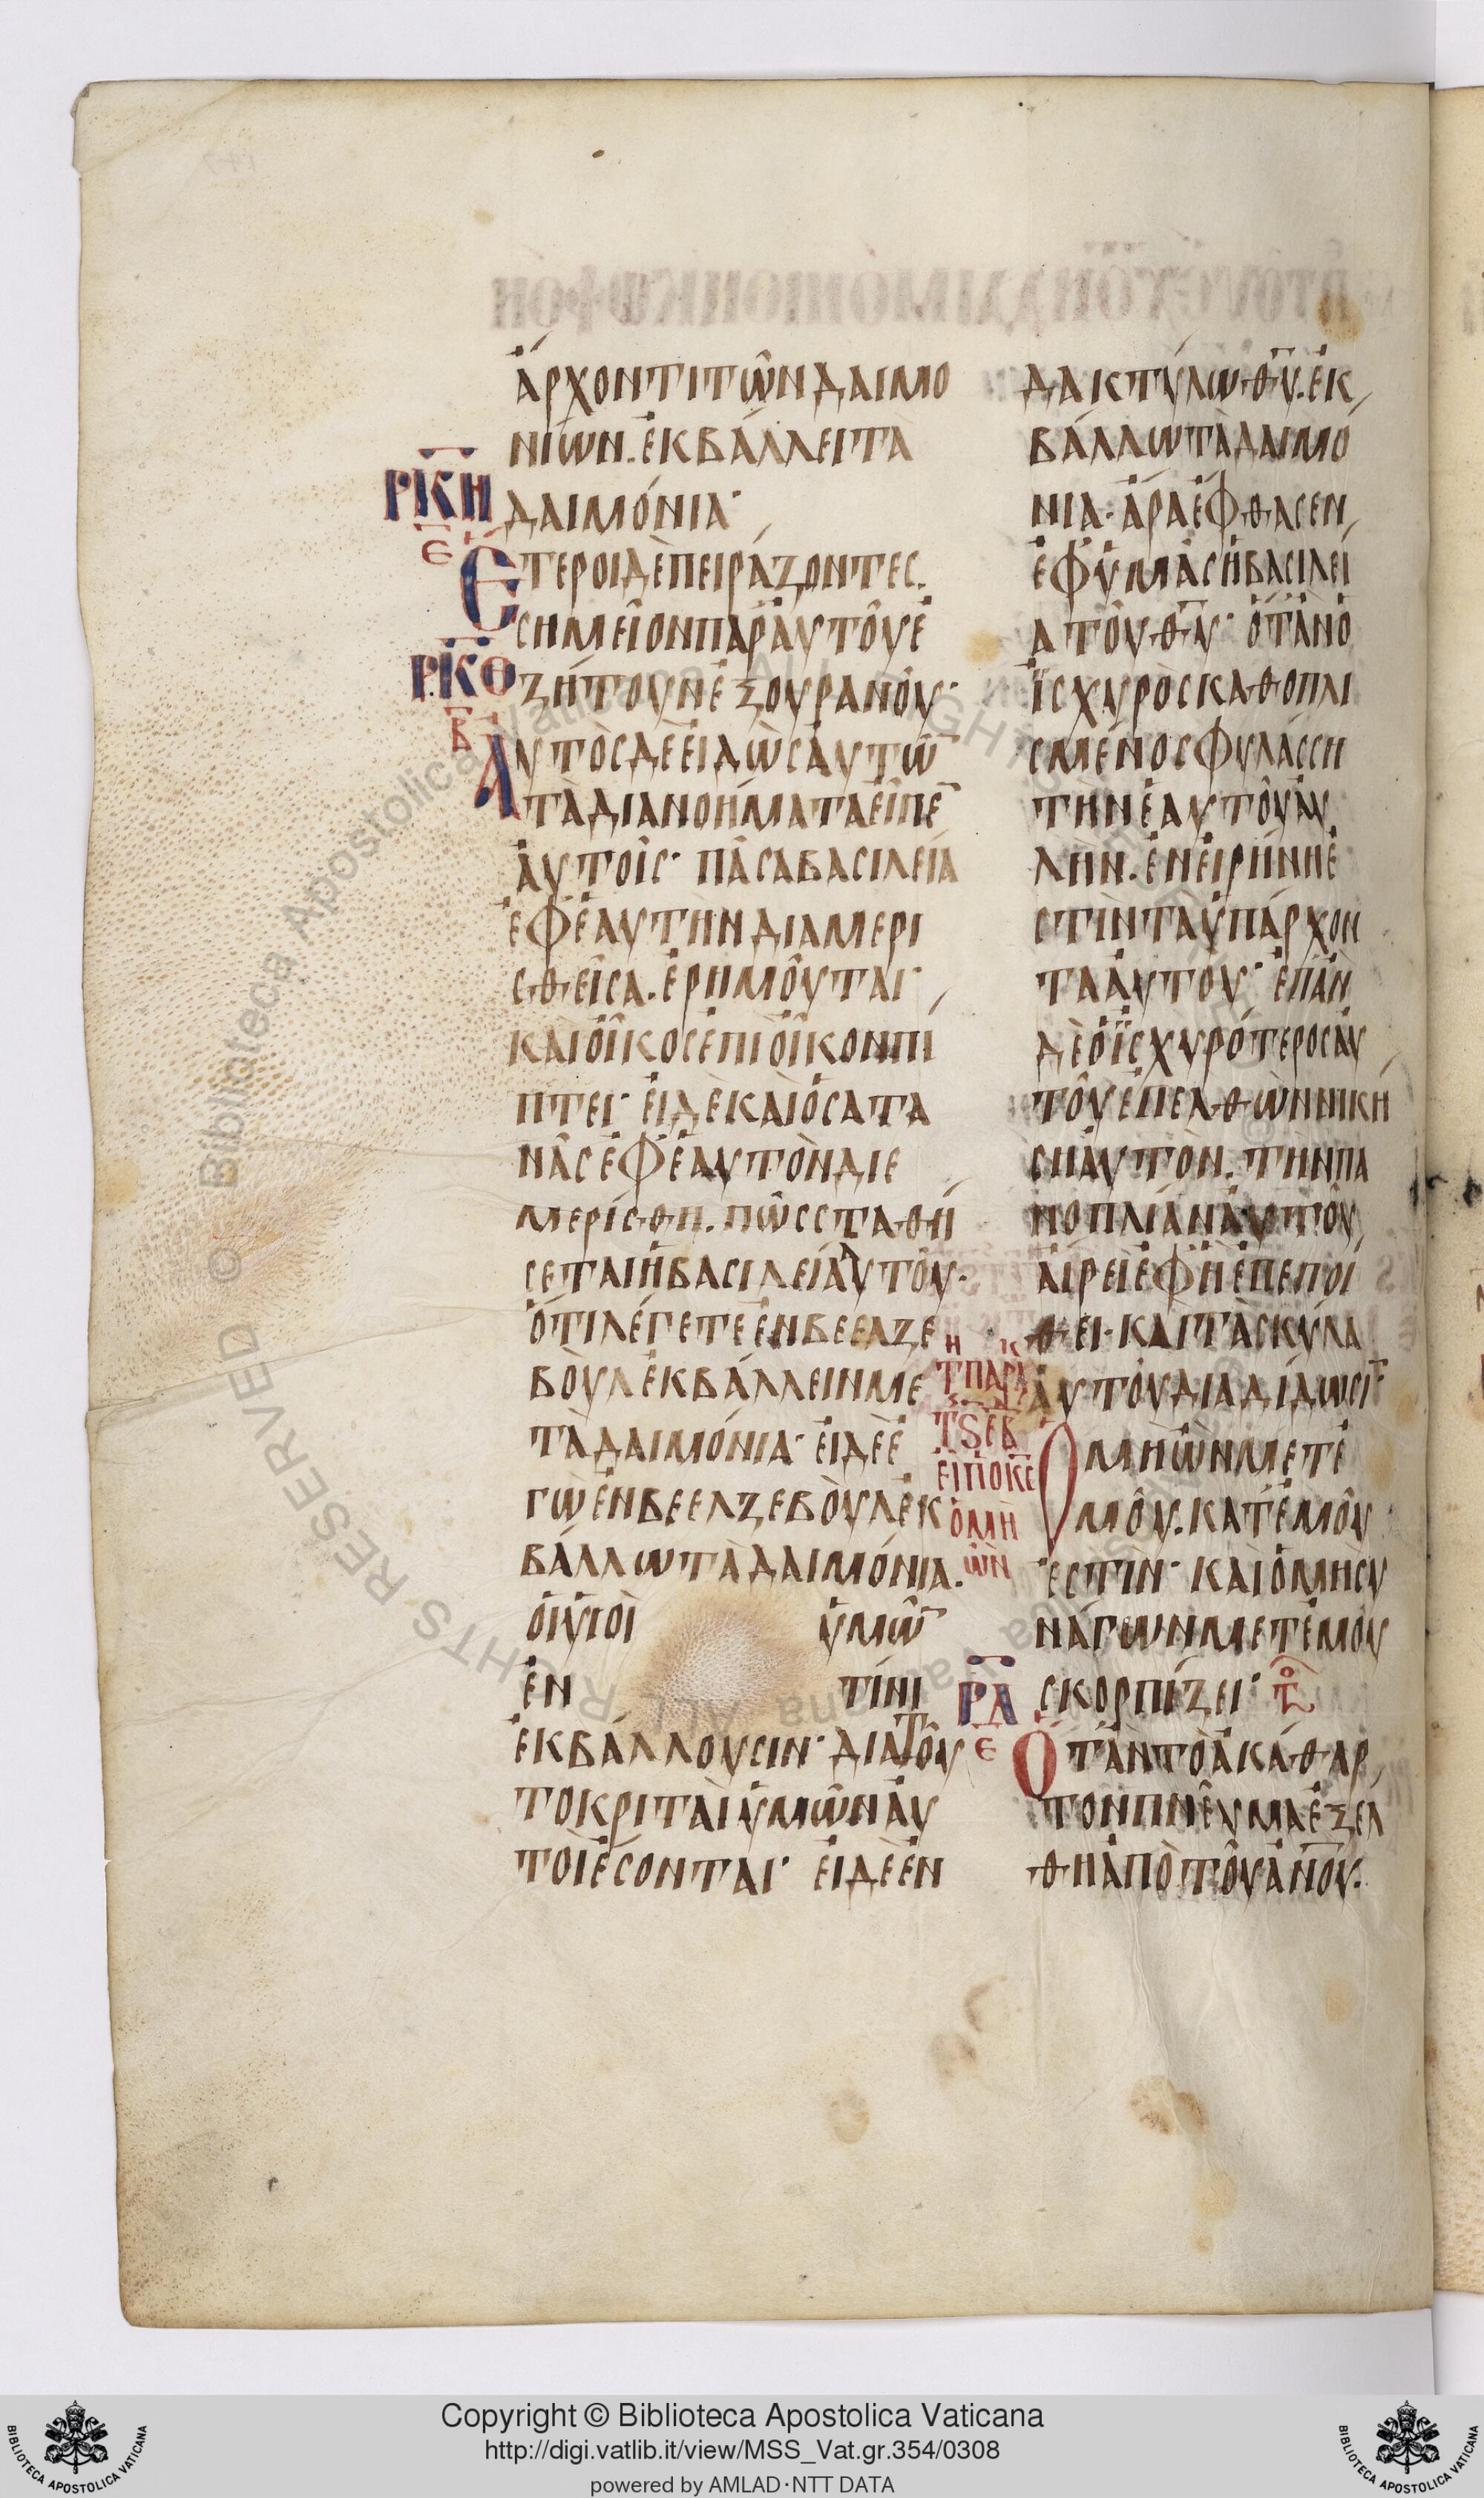 ἄρχοντι τῶν δαιμο
νίων. ἐκβάλλει τὰ
ΡΚΗ
δαιμόνια·
Ε
Ἕτεροι δὲ πειράζοντες.
σημεῖον παρ' ἀυτοῦ ἐ
ΡΚΘ
ζήτουν ἐξ οὐρανοῦ·
Β
Ἀυτὸς δὲ εἰδὼς ἀυτῶ̅
τὰ διανοήματα εἶπε̅
ἀυτοῖς· πᾶσα βασιλεία
ἐφ' ἑαυτὴν διαμερι
σθεῖσα. ἐρημοῦται·
καὶ οἶκος ἐπὶ οἶκον πί
πτει· εἰ δὲ καὶ ὁ σατα
νᾶς ἐφ' ἑαυτὸν διε
μερίσθη. πῶς σταθή
σεται ἡ βασιλεία ἀυτοῦ·
ὅτι λέγετε ἐν βεελζε
βοὺλ ἐκβάλλειν με
τὰ δαιμόνια· εἰ δὲ ἐ
γὼ ἐν βεελζεβοὺλ ἐκ
βάλλω τὰ δαιμόνια.
ὁι ὑιοὶ ὑμῶ̅
ἐν τίνι
ἐκβάλλουσιν· διὰ τοῦ
το κριταὶ ὑμῶν ἀυ
τοὶ ἔσονται· εἰ δὲ ἐν
δακτύλω θ̅υ̅. ἐκ
βάλλω τὰ δαιμό
νια· ἄρα ἔφθασεν
ἐφ' ὑμᾶς ἡ βασιλεί
α τοῦ θ̅υ̅· ὅταν ὁ
ἰσχυρὸς καθοπλι
σμένος φυλάσση
τὴν ἑαυτοῦ ἀυ
λήν. ἐν εἰρήνη ἐ
στὶν τὰ ὑπάρχον
τα ἀυτοῦ· ἐπὰν
δὲ ὁ ἰσχυρότερος ἀυ
τοῦ ἐπελθὼν νική
ση ἀυτὸν. τὴν πα
νοπλίαν ἀυτοῦ
αἴρει ἐφ' ἧ ἐπεποί
θει· καὶ τὰ σκῦλα
ἀυτοῦ διαδίδωσι̅
Ὁ μὴ ὢν μετ' ἐ
μοῦ. κατ' ἐμοῦ
ἐστὶν· καὶ ὁ μὴ συ
νάγων μετ' ἐμοῦ
ΡΛ
σκορπίζει·
Ε
Ὅταν τὸ ἀκάθαρ
τον πνεῦμα ἐξελ
θη ἀπὸ τοῦ ἀ̅ν̅ο̅υ̅.
εἶπ ὁ κ̅ε̅
ὁ μὴ
ὢν
Copyright © Biblioteca Apostolica Vaticana
http://digi.vatlib.it/view/MSS_Vat.gr.354/0308
powered by AMLAD·NTT DATA
BIBLIOTECA APOSTOLICA VATICANA
BIBLIOTECA APOSTOLICA VATICANA